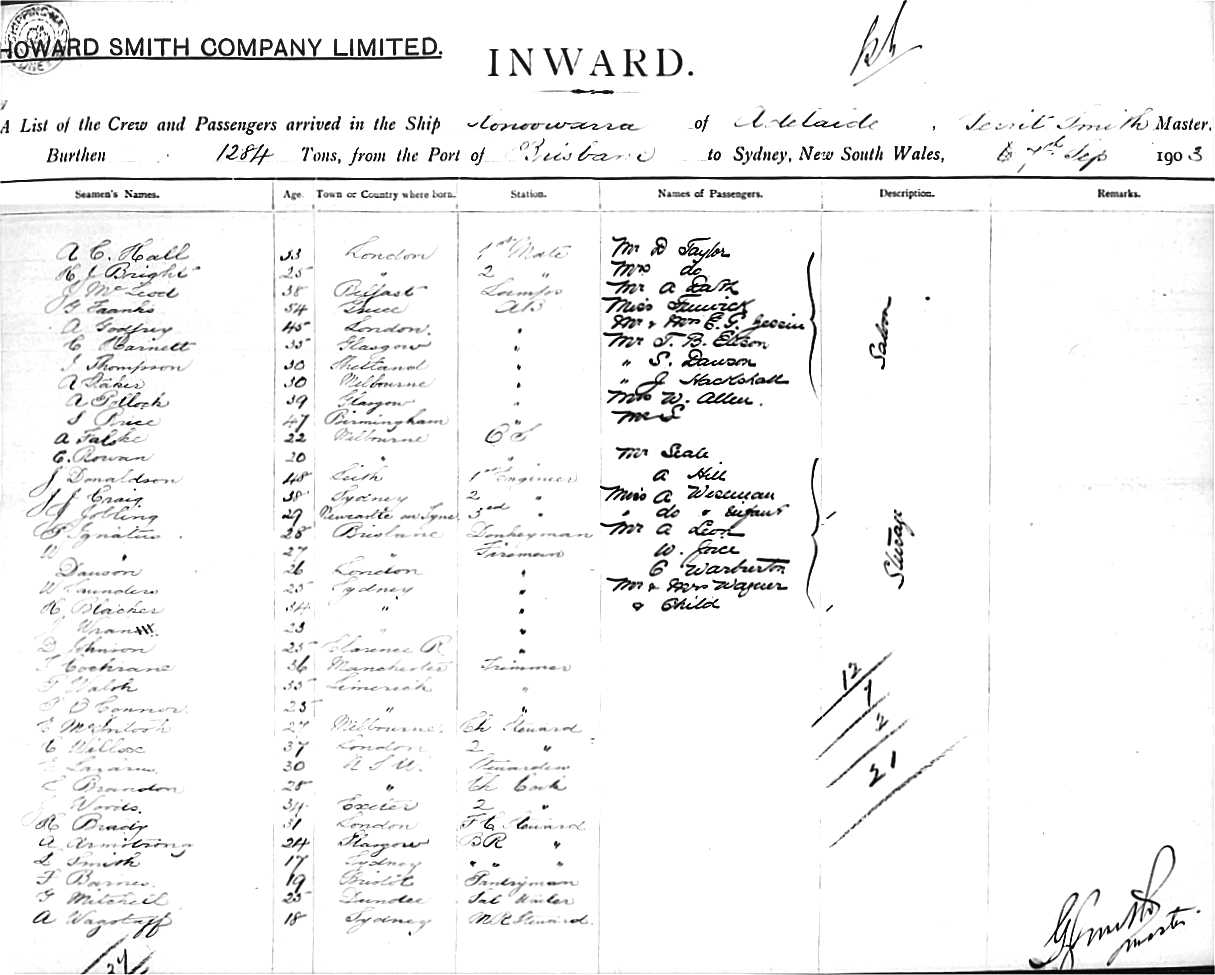 HOWARD SMITH COMPANY LIMITED.
INWARD.
A List of the Crew and Passengers arrived in the Ship of Adelaide, Smith Master.
Burthen 1284 Tons, from the Port of Brisbane to Sydney, New South Wales, 7th Sep 1903
Seamen's Names. Age. Town or Country where born. Station. Names of Passengers. Description. Remarks.
A C. Hall 53 London 1st Mate Mr D Taylor
H J Bright 25 " 2 " Mrs do
J McLeod 38 Belfast Lamps Mr A
G Franks 54 Greece AB Miss Fenwick
A Godfrey 45 London " Mr & Mrs E. G.
C Harnett 35 Glasgow " Mr T. B.
J Thompson 30 Shetland " " S. Dawson
A 30 Melbourne " " J Hackshall
A Pollock 39 Glasgow " Mrs W. Allen.
Price 47 Birmingham "
A Falske 22 Melbourne O S
C. Rowan 20 " " Mr Seale
J Donaldson 48 Leith 1st Engineer A Hill
J J Craig 38 Sydney 2 " Miss A
J Jobling 29 Newcastle on Tyne 3rd " " do & Infant
Ignatius 28 Brisbane Donkeyman Mr A Leon
W " 27 " Fireman W. Joice
Dawson 26 London " C Warburton
W Saunders 25 Sydney " Mr & Mrs Wagner
H Blacker 34 " " & Child
Wran 23 " "
D Johnson 25 Clarence R. "
Cochrane 36 Manchester Trimmer
Walsh 35 Limerick "
O'Connor 25 " "
McIntosh 27 Melbourne Ch Steward
C Willcox 37 London 2 "
30 N S W. Stewardess
Brandon 28 " Ch Cook
Woods 34 Exeter 2 "
H Brady 31 London F C Steward
A Armstrong 24 Glasgow BR "
L Smith 17 Sydney " " "
F Barnes 19 Bristol Pantryman
G Mitchell 25 Dundee Sal Waiter
A Wagstaff 18 Sydney M R Steward
Saloon
Steerage
12
7
2
21
G Smith
Master.